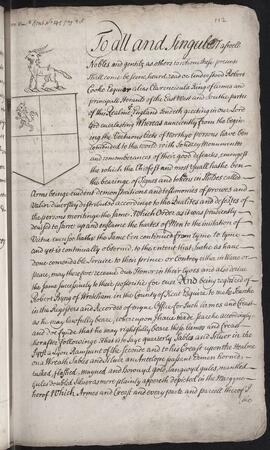 112
To all and Singuler aswell
Nobles and gentils as others to whom these presents
Shall come be seene, heard, read or understand Robert
Cooke Esquier alias Clarencieulx King of Armes and
principall Herauld of the East West and South partes
of this Realme of England sendeth greeting in our Lord
God everlasting Whereas aunciently from the begin-
ing the Vertuous Actes of Worthye persons have ben
comended to the world with Sondry Monuments
and remembrances of their good deserts, amongst
the which the Chiefest and most Usuall hath ben
the bearinge of Signes and tokens in Shilds called
Armes beinge evident demonstracions and testemonies of prowes and
Valor diversly distributed accordinge to the Qualites and deserts of
the persons meritinge the same, Which Order as it was prudently
devised to stirre up and enflame the hartes of Men to the imitation of
Vertue even so hathe the same ben continued from tyme to tyme
and yet is continually observed to the entent that suche as have
done comendable Service to their prince or Contrey either in Warre or
peace, may therefore receive due Honor in their lyves and also derive
the same successively to their posteritie for ever And being required of
Robert Byng of Wrotham in the County of Kent Esquire to make Searche
in the Registers and Recordes of myne Office for Such Armes and Creast
as he may lawfully beare, whereupon I have made Searche accordingly
and doe fynde that he may rightfully beare these Armes and Creast
hereafter followinge That is to saye quarterly Sables and Silver in the
Lyon Rampant of the Seconde and to his Creast upon the healme
on a Wreath Sables and Silver an Antelope passant Ermen horned,
tusked, flashed, mayned and hoovyd gold, langwyd gules mantled
Gules doubled Silver as more plainly appeareth depicted in the Margent
here of Which Armes and Creast and every parte and parcell thereof I